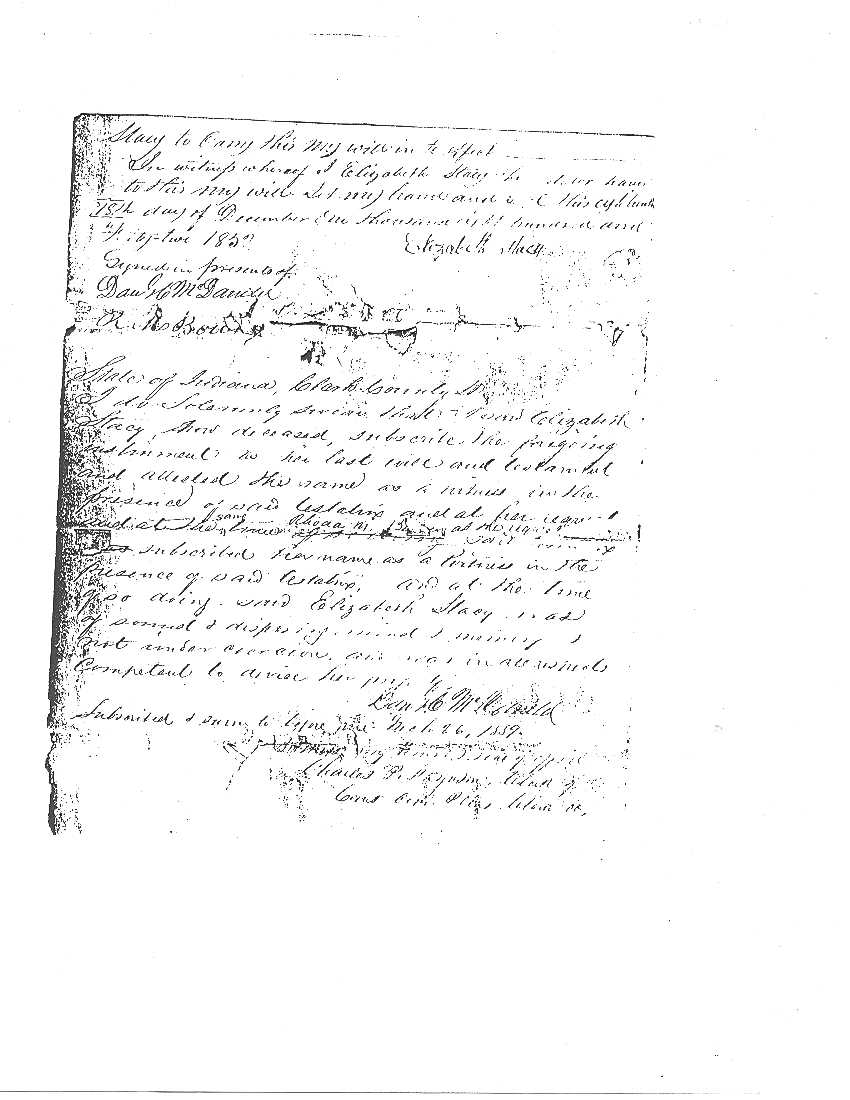 Stacy to Carry this my will in to effect
In witness whereof I Elizabeth Stacy have
to this my will Set my hand and this
18th day of December One thousand eight hundred and
fifty two 1852
Elizabeth Stacy
Signed in presents of
Danl H McDaniel
State of Indiana, Clark County
I do Solemnly swear that said Elizabeth
Stacy, now deceased, subscribe the foregoing
instrument as her last will and testament
and attested the same as a witness in the
presence of said testatrix and at her
and at the same time Rhoda M. at the
subscribed her name as a witness in the
presence of said testatrix, and at the time
of so doing said Elizabeth Stacy was
of sound & disposing mind & memory &
not under coercion, and was in all respects
Competent to devise her
Subscribed & sworn to before me March 26, 1859.
my hand & seal of
Charles P. Ferguson, Clerk of
Court Com. Pleas, Clark Co.